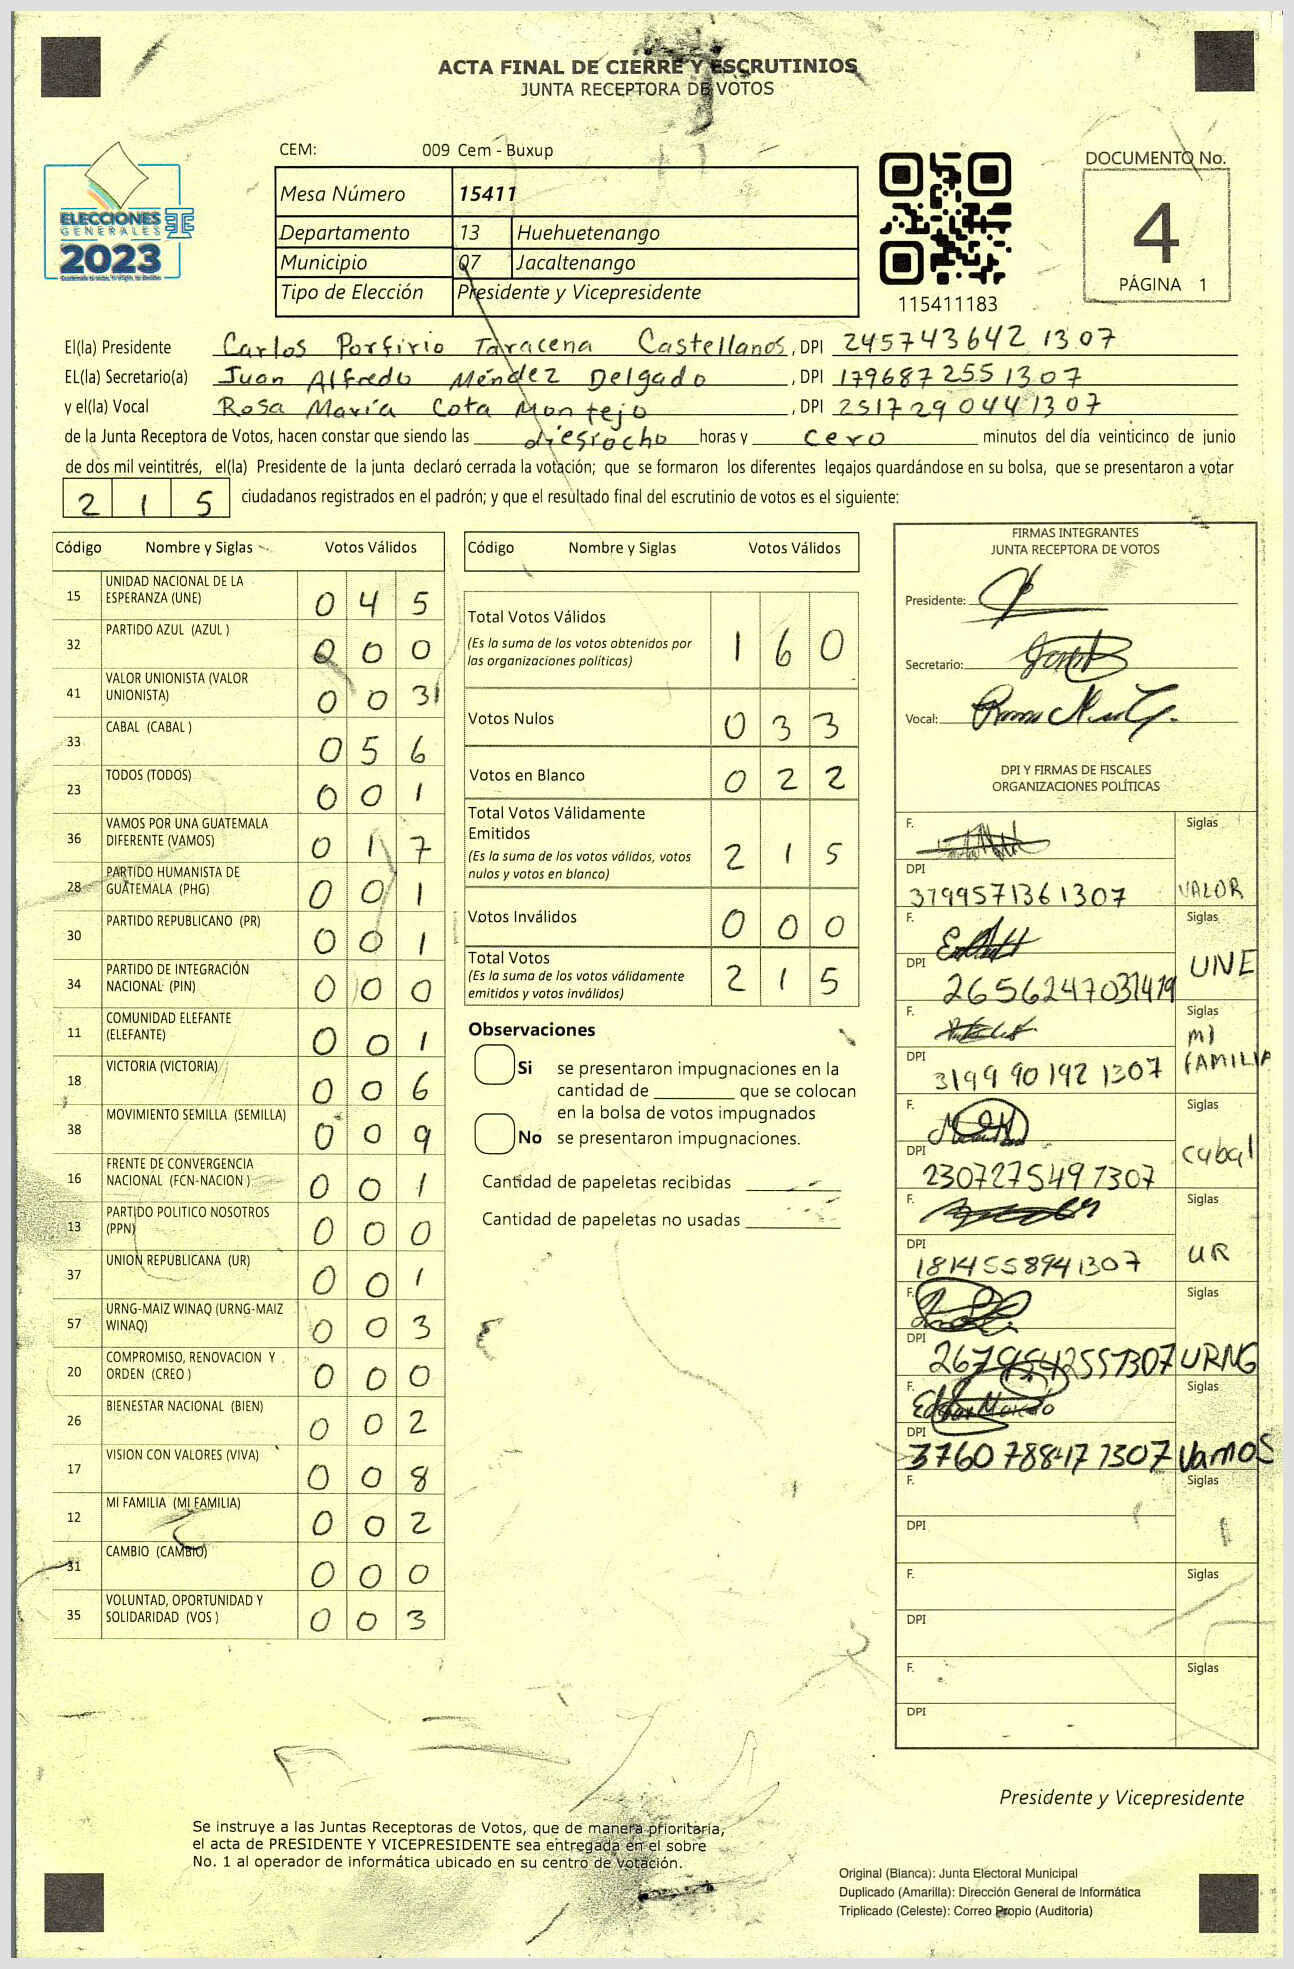 ACTA FINAL DE CIERRE Y ESCRUTINIOS
JUNTA RECEPTORA DE VOTOS
CEM: 009 Cem - Buxup
ELECCIONES
GENERALES
2023
Mesa Número 15411
Departamento 13 Huehuetenango
Municipio 07 Jacaltenango
Tipo de Elección Presidente y Vicepresidente
115411183
DOCUMENTO No.
4
PÁGINA 1
El(la) Presidente Carlos Porfirio Taracena Castellanos, DPI 245743642 1307
EL(la) Secretario(a) Juan Alfredo Méndez Delgado, DPI 179687255 1307
y el(la) Vocal Rosa María Cota Montejo, DPI 251729044 1307
de la Junta Receptora de Votos, hacen constar que siendo las diesiocho horas y cero minutos del día veinticinco de junio
de dos mil veintitrés, el(la) Presidente de la junta declaró cerrada la votación; que se formaron los diferentes legajos guardándose en su bolsa, que se presentaron a votar
2 1 5 ciudadanos registrados en el padrón; y que el resultado final del escrutinio de votos es el siguiente:
Código Nombre y Siglas Votos Válidos
15 UNIDAD NACIONAL DE LA ESPERANZA (UNE) 0 4 5
32 PARTIDO AZUL (AZUL ) 0 0 0
41 VALOR UNIONISTA (VALOR UNIONISTA) 0 0 3
33 CABAL (CABAL ) 0 5 6
23 TODOS (TODOS) 0 0 1
36 VAMOS POR UNA GUATEMALA DIFERENTE (VAMOS) 0 1 7
28 PARTIDO HUMANISTA DE GUATEMALA (PHG) 0 0 1
30 PARTIDO REPUBLICANO (PR) 0 0 1
34 PARTIDO DE INTEGRACIÓN NACIONAL (PIN) 0 0 0
11 COMUNIDAD ELEFANTE (ELEFANTE) 0 0 1
18 VICTORIA (VICTORIA) 0 0 6
38 MOVIMIENTO SEMILLA (SEMILLA) 0 0 9
16 FRENTE DE CONVERGENCIA NACIONAL (FCN-NACION ) 0 0 1
13 PARTIDO POLITICO NOSOTROS (PPN) 0 0 0
37 UNION REPUBLICANA (UR) 0 0 1
57 URNG-MAIZ WINAQ (URNG-MAIZ WINAQ) 0 0 3
20 COMPROMISO, RENOVACION Y ORDEN (CREO ) 0 0 0
26 BIENESTAR NACIONAL (BIEN) 0 0 2
17 VISION CON VALORES (VIVA) 0 0 8
12 MI FAMILIA (MI FAMILIA) 0 0 2
31 CAMBIO (CAMBIO) 0 0 0
35 VOLUNTAD, OPORTUNIDAD Y SOLIDARIDAD (VOS ) 0 0 3
Código Nombre y Siglas Votos Válidos
Total Votos Válidos 1 6 0
(Es la suma de los votos obtenidos por
las organizaciones políticas)
Votos Nulos 0 3 3
Votos en Blanco 0 2 2
Total Votos Válidamente
Emitidos 2 1 5
(Es la suma de los votos válidos, votos
nulos y votos en blanco)
Votos Inválidos 0 0 0
Total Votos 2 1 5
(Es la suma de los votos válidamente
emitidos y votos inválidos)
Observaciones
Si se presentaron impugnaciones en la
cantidad de ________ que se colocan
en la bolsa de votos impugnados
No se presentaron impugnaciones.
Cantidad de papeletas recibidas
Cantidad de papeletas no usadas
FIRMAS INTEGRANTES
JUNTA RECEPTORA DE VOTOS
Presidente:
Secretario:
Vocal:
DPI Y FIRMAS DE FISCALES
ORGANIZACIONES POLÍTICAS
F. Siglas
DPI 3799571361307 VALOR
F. Siglas
DPI 2656247031419 UNE
F. Siglas
DPI 3199 90192 1307 MI FAMILIA
F. Siglas
DPI 230727549 1307 Cabal
F. Siglas
DPI 1814558941307 UR
F. Siglas
DPI 2679542551307 URNG
F. Siglas
DPI 3760 78847 1307 Vamos
F. Siglas
DPI
F. Siglas
DPI
F. Siglas
DPI
Presidente y Vicepresidente
Se instruye a las Juntas Receptoras de Votos, que de manera prioritaria,
el acta de PRESIDENTE Y VICEPRESIDENTE sea entregada en el sobre
No. 1 al operador de informática ubicado en su centro de votación.
Original (Blanca): Junta Electoral Municipal
Duplicado (Amarilla): Dirección General de Informática
Triplicado (Celeste): Correo Propio (Auditoria)